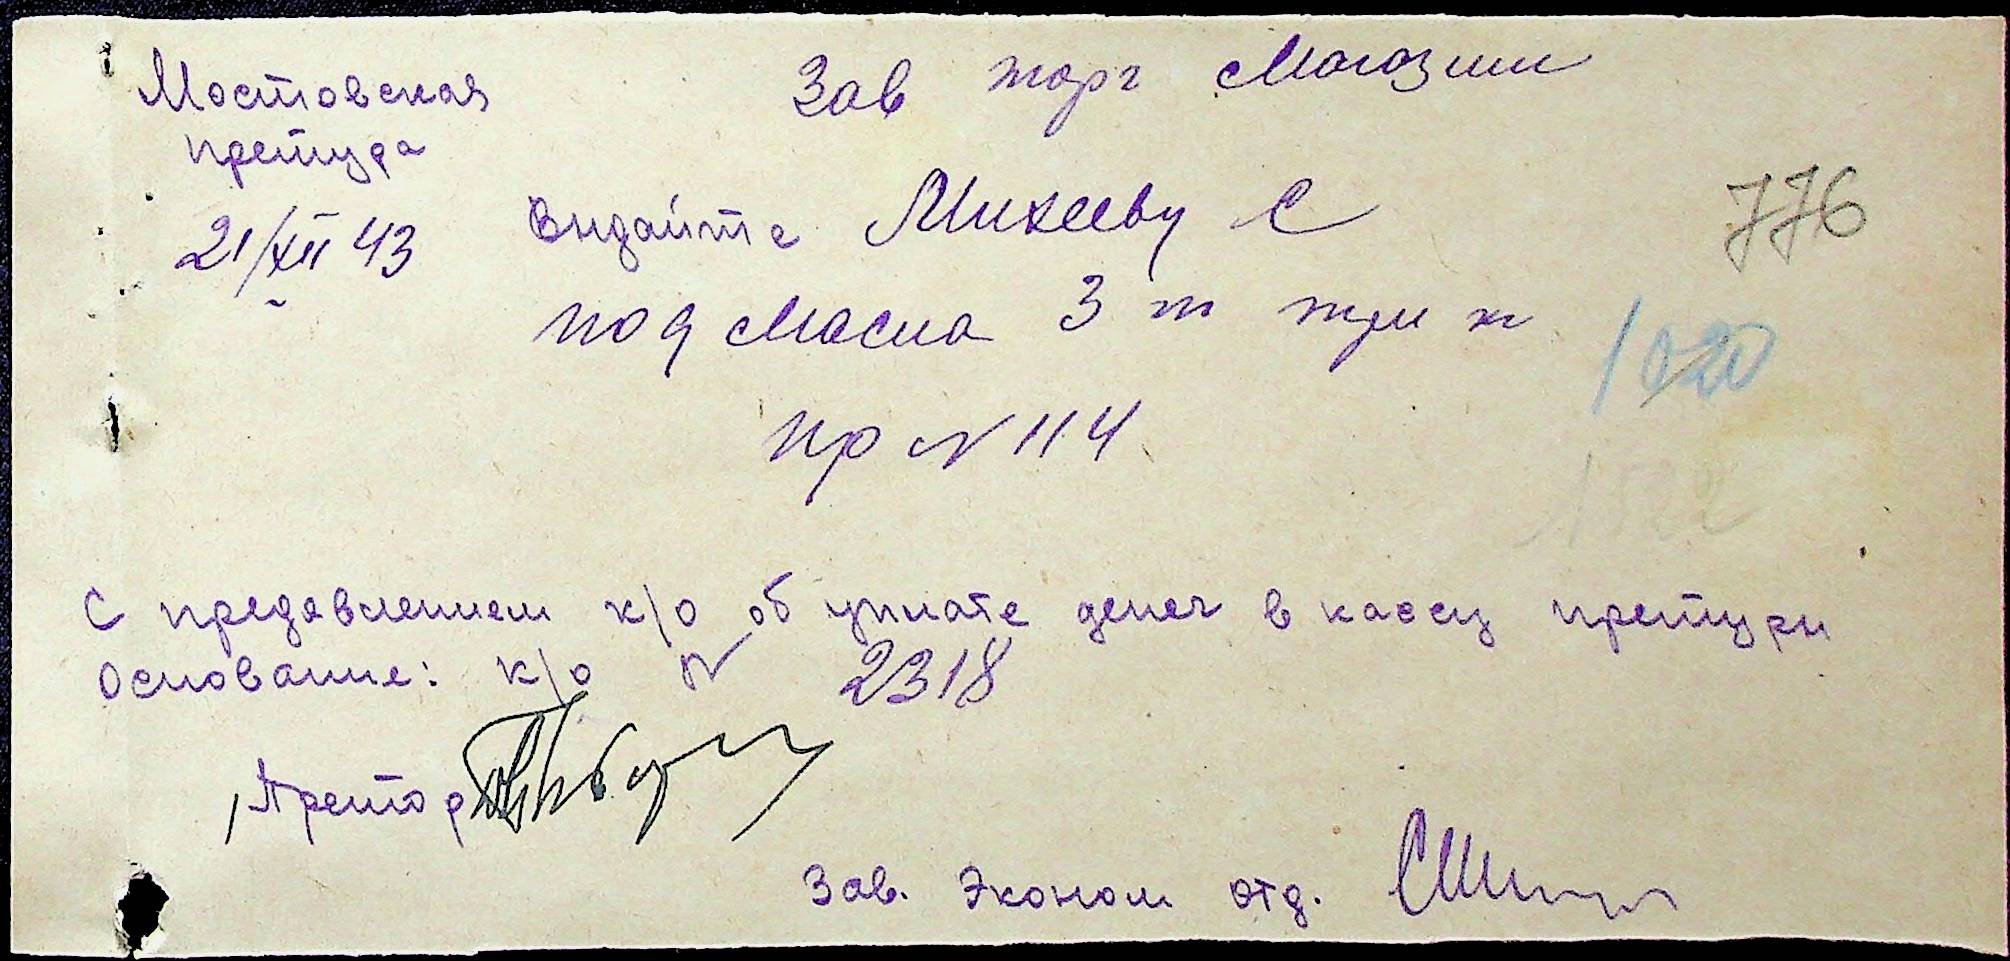 Мостовская
претура
21/XII 43
Зав торг Магазин
Выдайте Михееву С
под Масла 3 т три т
пр N 114
776
1020
1522
С предявлением к/о об уплате денег в кассу претуры
Основание: к/о N 2318
Претор
Зав. Эконом отд.